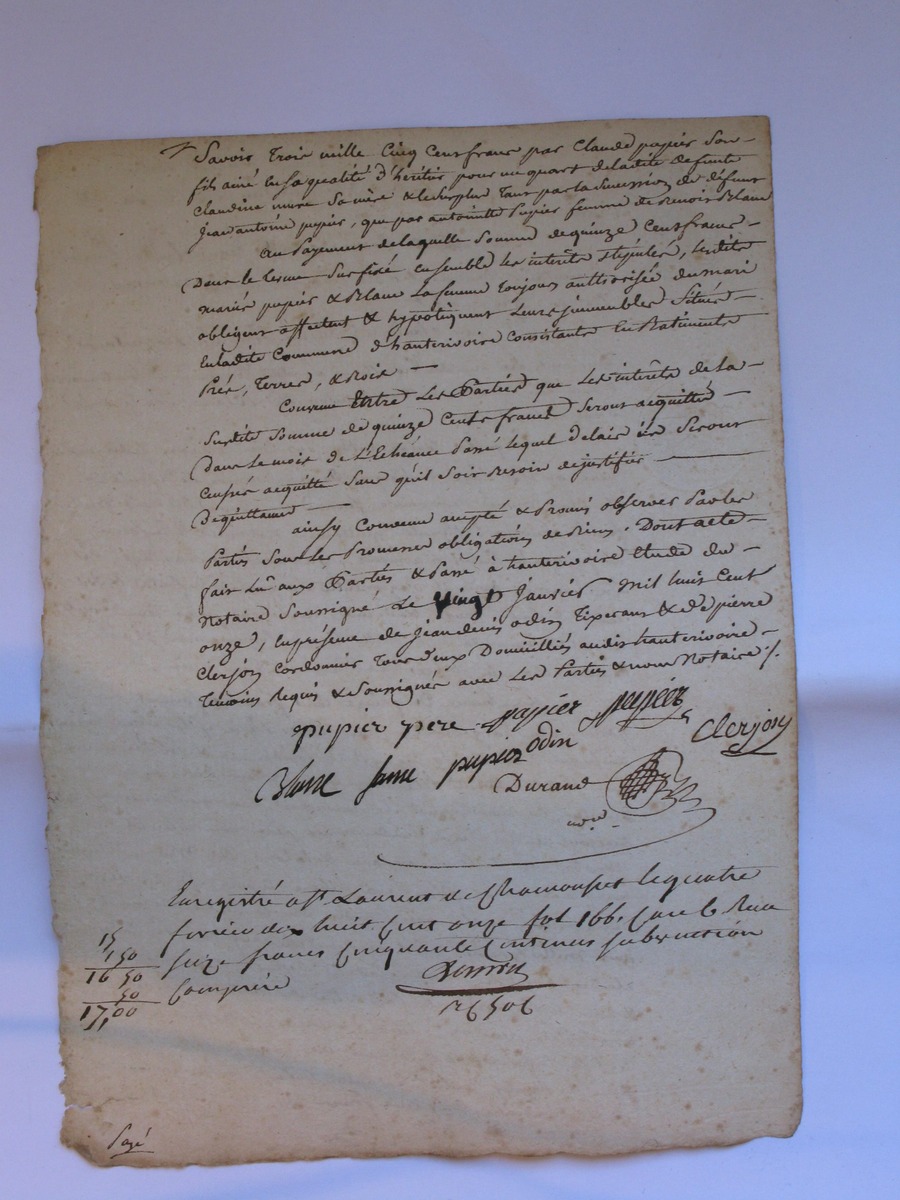 Savoir Trois mille Cinq Cents francs par Claude pupier Son-
fils ainé en sa qualité d'héritier pour un quart de ladite defunte
Claudine mure Sa mère & le Surplus Tant par la Succession du défunt
Jean antoine pupier, que par antoinette Pupier femme de Benoit Blanc
Au Payement de laquelle Somme de quinze Cents francs-
Dans le terme Sus fixé ensemble les intérêts Stipulés, lesdits
mariés pupier & Blanc La femme Toujours authorisée du mari
obligent affectent & hypotèquent Leurs immeubles Situés-
En ladite Commune d'hauterivoire Consistants En Batiments
Prés, Terres, & Bois —
Convenu Entre Les Parties que Les intérêts de La-
Susdite Somme de quinze Cents francs Seront acquittés-
Dans Le mois de L'Echéance Passé Lequel délais ils Seront
Censés acquitté Sans qu'il Soit Besoin de justifier —
De quittance —
ainsy Convenu accepté & Promis observer Par les
Parties Sous Les Promesses obligations de Biens. Dont acte-
fait Lû aux Parties & Passé à hauterivoire Etude du-
Notaire Soussigné Le vingt Janvier mil huit Cent
onze, en présence de Jean denis odin Tixerant & de pierre
Clerjon Cordonnier Tous deux Domiciliés audit hauterivoire-
Temoins Requis & Soussignés avec Les Parties & nous Notaire ./.
pupier pere pupier pupier
Clerjon
Blanc fame pupier odin
Durand
Enregistré a St. Laurent de Chamousset le quatre
fevrier dix huit Cent onze fol 166.
seize francs Cinquante Centimes subvention
Comprise
15
1,50
16 50
50
17,00
Payé